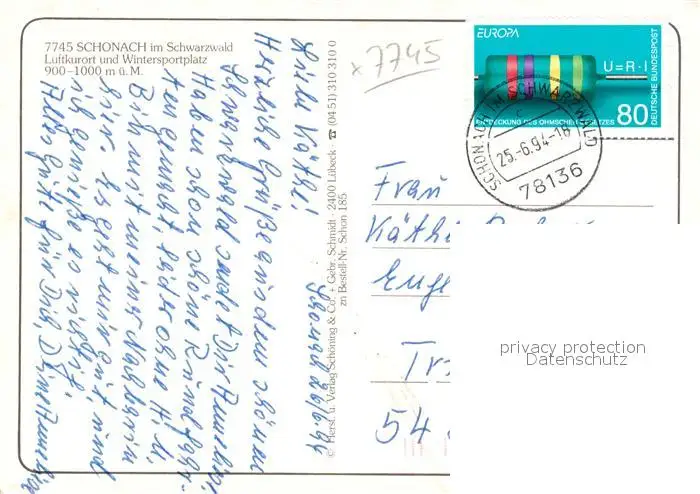 7745 SCHONACH im Schwarzwald
Luftkurort und Wintersportplatz
900–1000 m ü. M.
x 7745
EUROPA
U=R·I
ENTDECKUNG DES OHMSCHEN GESETZES
80
DEUTSCHE BUNDESPOST
SCHONACH IM SCHWARZWALD
25.-6.94-18
78136
© Herst. u. Verlag Schöning & Co. + Gebr. Schmidt · 2400 Lübeck · ☎ (04 51) 310 310 0
zu Bestell-Nr. Schon 185
Schonach 26/6.94
Liebe Käthe!
Herzliche Grüße aus dem schönen
Schwarzwald sendet Dir
Haben schon schöne Rundfahr-
ten gemacht, leider ohne
Bin mit meiner Nachbarin
hier. Es geht uns gut, und
ich genieße es richtig.
Alles Gute für Dich, Deine
Frau
Käthe
Tr
54
privacy protection
Datenschutz